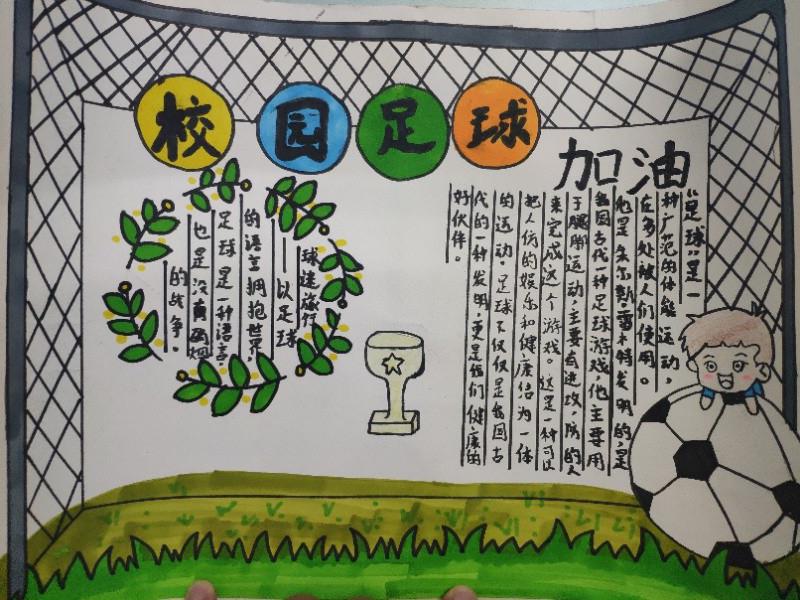 校园足球
加油
"足球"是一
种广范的体能运动,
在多处被人们使用。
他是朱尔斯·雷米特发明的,是
我国古代一种足球游戏,他主要用
于腿脚运动,主要有进攻,防的人
来完成这个游戏。这是一种可以
把人仿的娱乐和健康结为一体
的运动。足球不仅仅是我国古
代的一种发明,更是我们健康的
好伙伴。
球迷旅行
——以足球
的语言拥抱世界,
足球是一种语言,
也是没有硝烟
的战争。